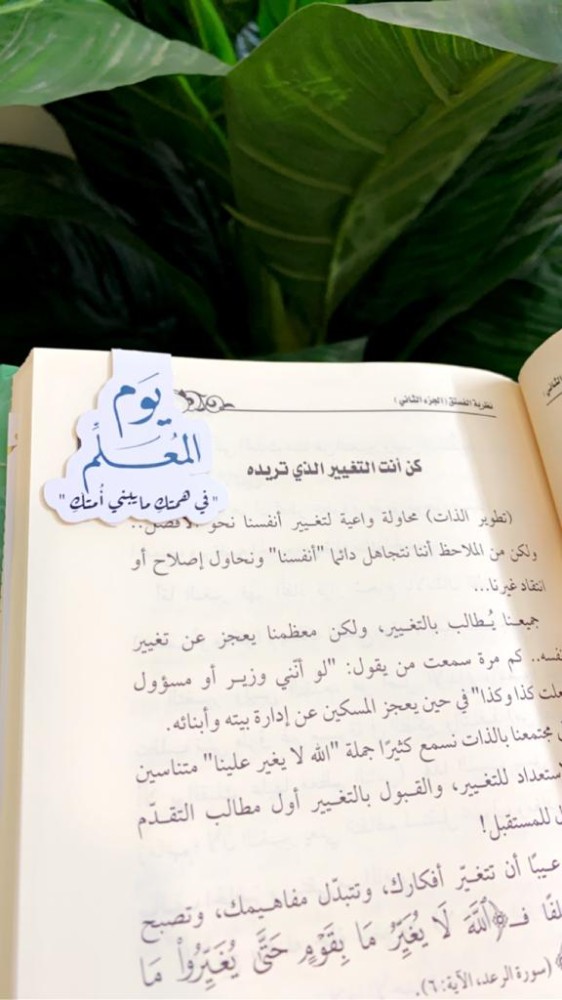 يَوم
المُعلِّم
"في همتكِ مايبني أُمتكِ"
نظرية الفستق (الجزء الثاني)
كن أنت التغيير الذي تريده
(تطوير الذات) محاولة واعية لتغيير أنفسنا نحو الأفضل..
ولكن من الملاحظ أننا نتجاهل دائما "أنفسنا" ونحاول إصلاح أو
انتقاد غيرنا...
جميعنا يُطالب بالتغيير، ولكن معظمنا يعجز عن تغيير
نفسه.. كم مرة سمعت من يقول: "لو أنّني وزير أو مسؤول
كذا وكذا" في حين يعجز المسكين عن إدارة بيته وأبنائه.
مجتمعنا بالذات نسمع كثيرًا جملة "الله لا يغير علينا" متناسين
للتغيير، والقبول بالتغيير أول مطالب التقدّم
للمستقبل!
عيبًا أن تتغيّر أفكارك، وتتبدّل مفاهيمك، وتصبح
فـ﴿ٱللَّهَ لَا يُغَيِّرُ مَا بِقَوْمٍ حَتَّىٰ يُغَيِّرُوا۟ مَا
﴾ (سورة الرعد، الآية: ٦).